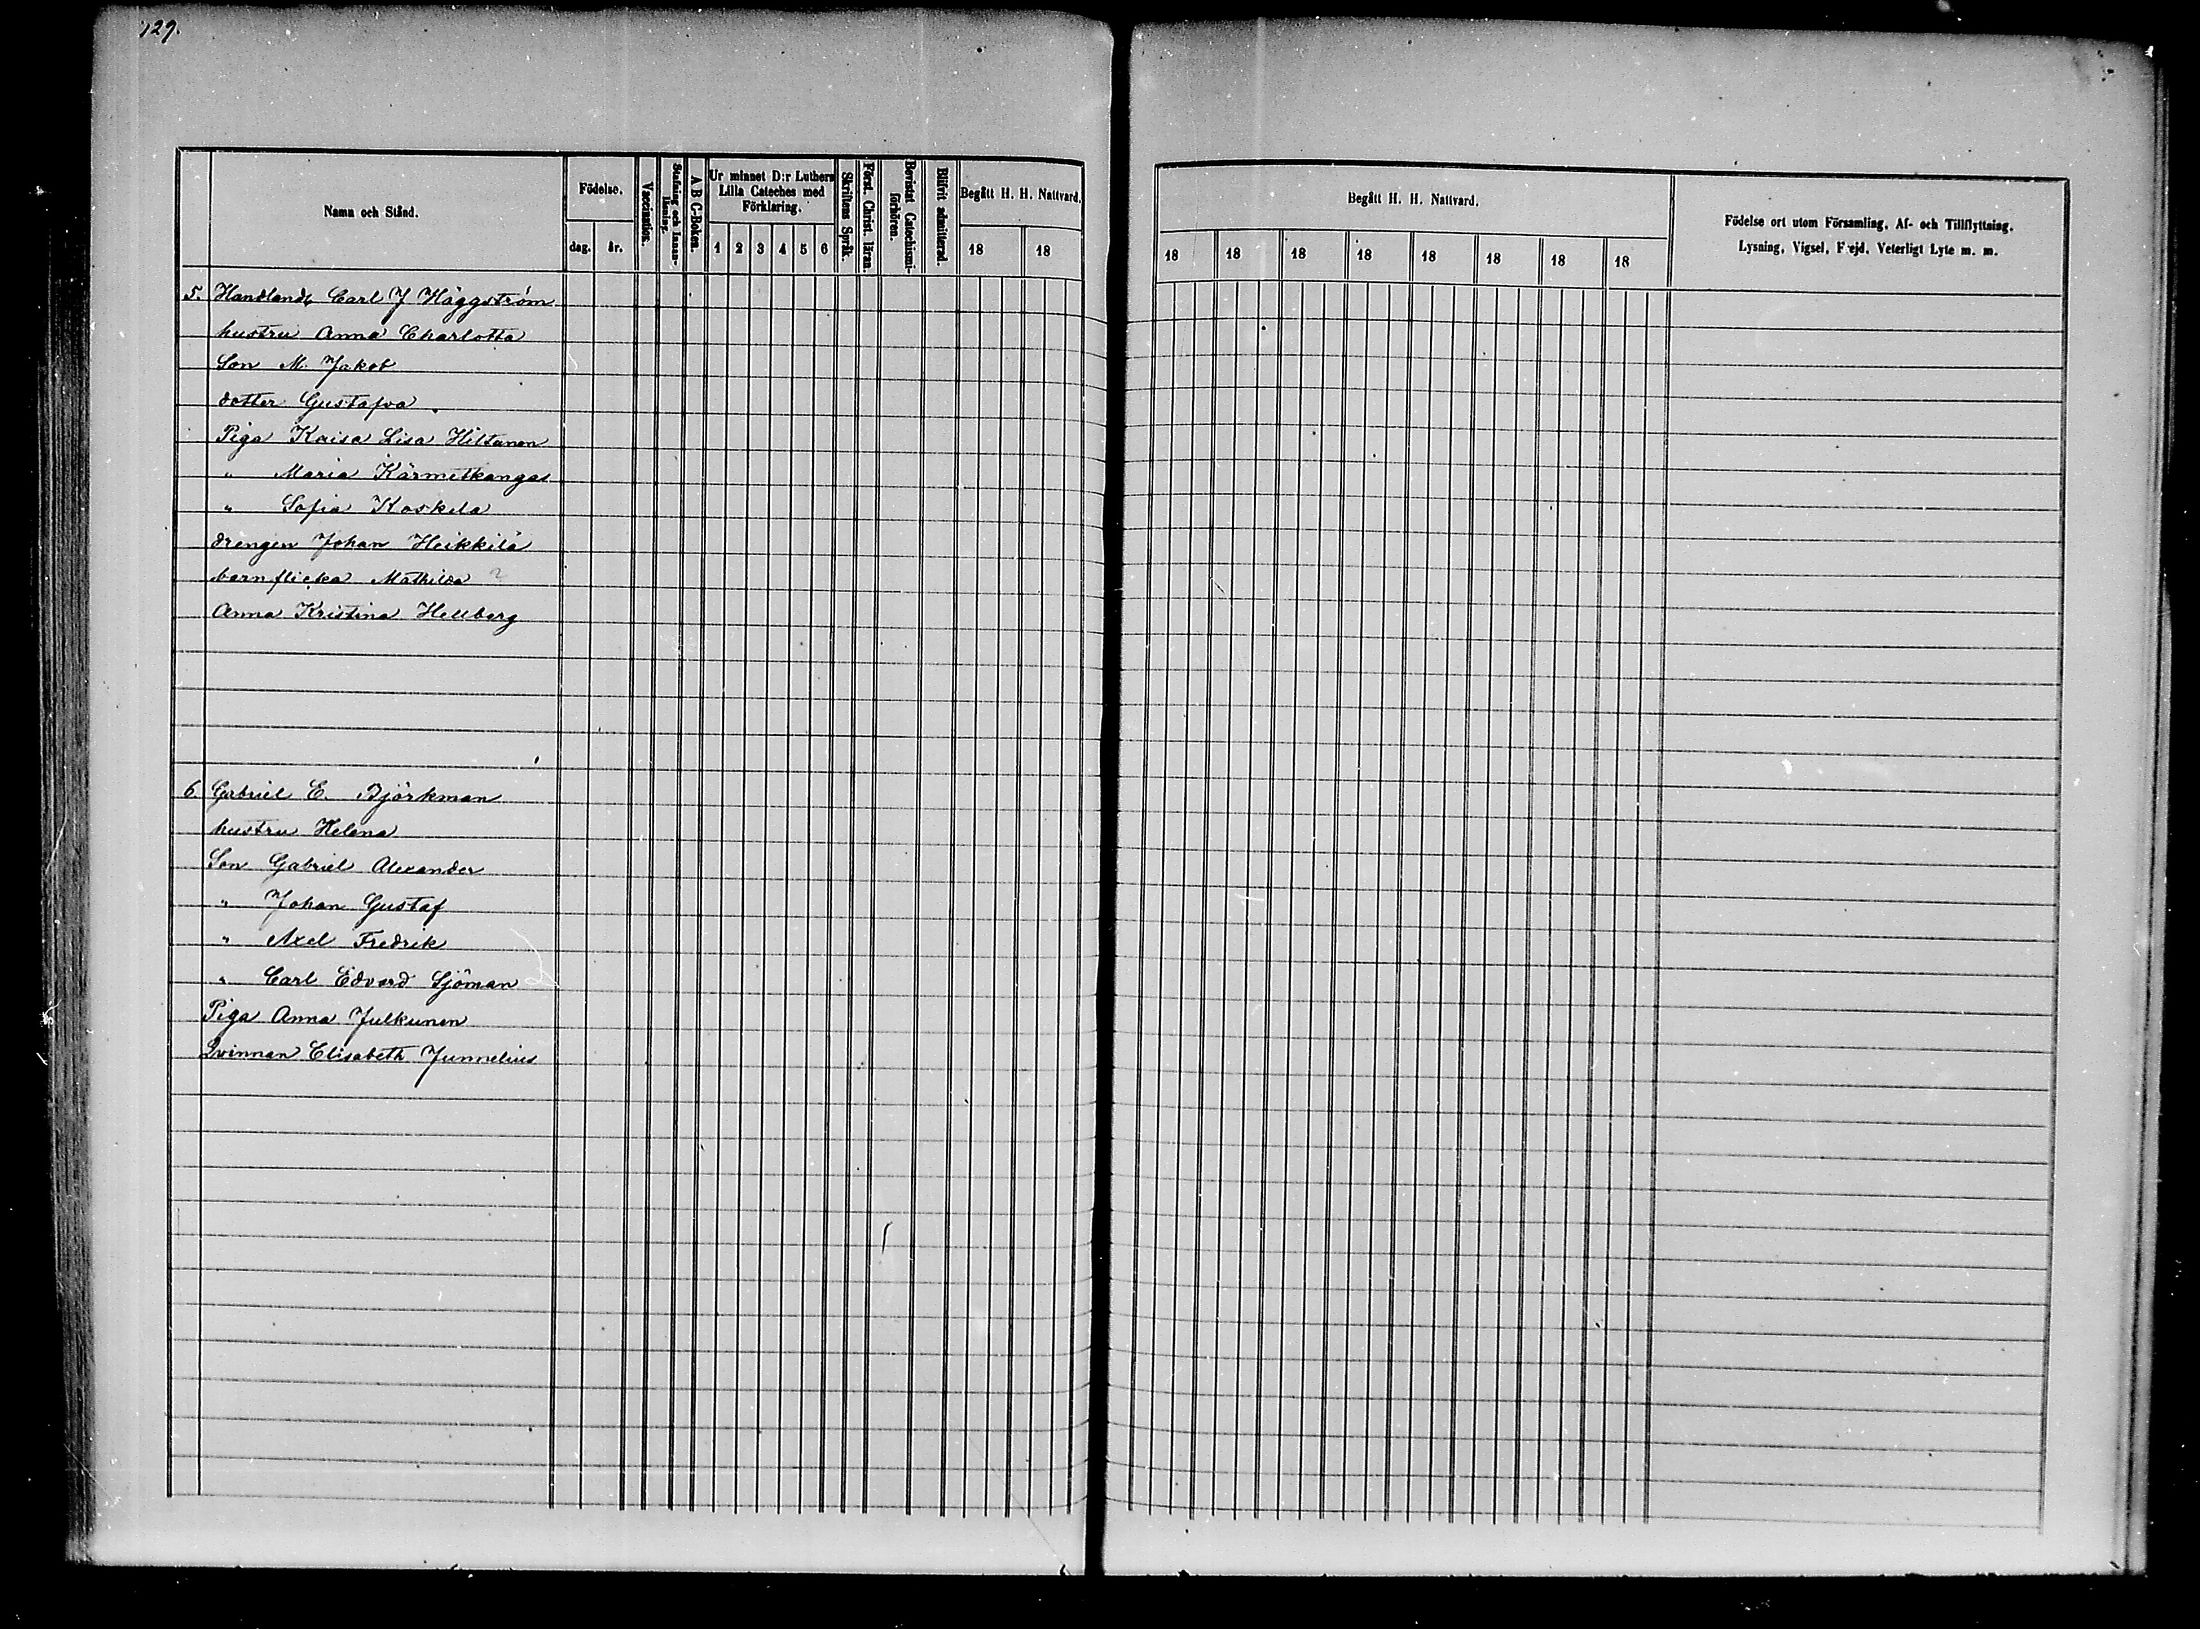 129.
Namn och Stånd.
Födelse.
dag. år.
Vaccination.
Stafning och Innanläsning.
A B C-Boken.
Ur minnet D:r Luthers
Lilla Cateches med
Förklaring.
1 2 3 4 5 6
Skriftens Språk.
Först. Christ. läran.
Bevistat Catechismi-
förhören.
Blifvit admitterad.
Begått H. H. Nattvard.
18 18
Begått H. H. Nattvard.
18 18 18 18 18 18 18 18
Födelse ort utom Församling, Af- och Tillflyttning,
Lysning, Vigsel, Frejd, Veterligt Lyte m. m.
5. Handlande Carl J Häggström
hustru Anna Charlotta
Son M. Jakob
dotter Gustafva
Piga Kaisa Lisa Hiltanen
" Maria Kärmetkangas
" Sofia Koskela
drengen Johan Heikkilä
barnflicka Mathilda ?
Anna Kristina Hellberg
6. Gabriel E. Björkman
hustru Helena
Son Gabriel Alexander
" Johan Gustaf
" Axel Fredrik
" Carl Edvard Sjöman
Piga Anna Julkunen
Qvinnan Elisabeth Junnelius